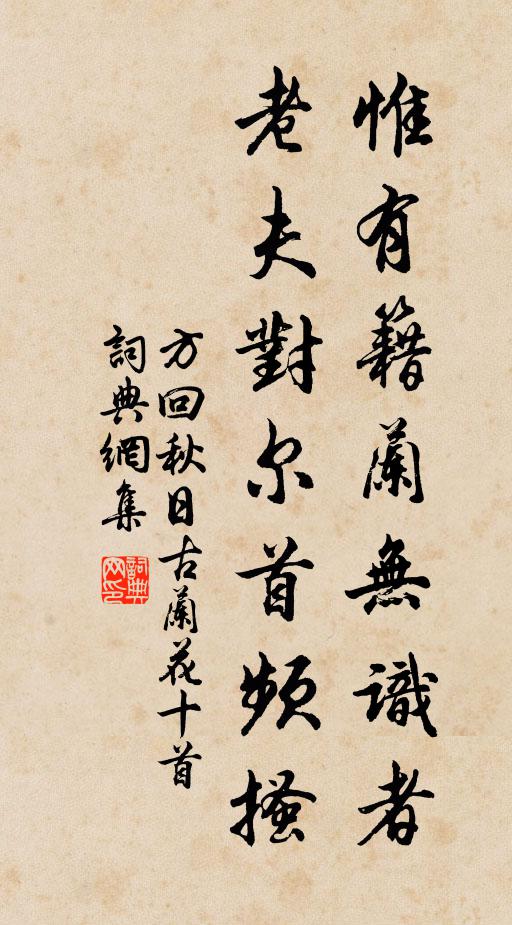 惟有籍蘭無識者
老夫對尔首頻搔
方回秋日古蘭花十首
詞典網集
詞典网印